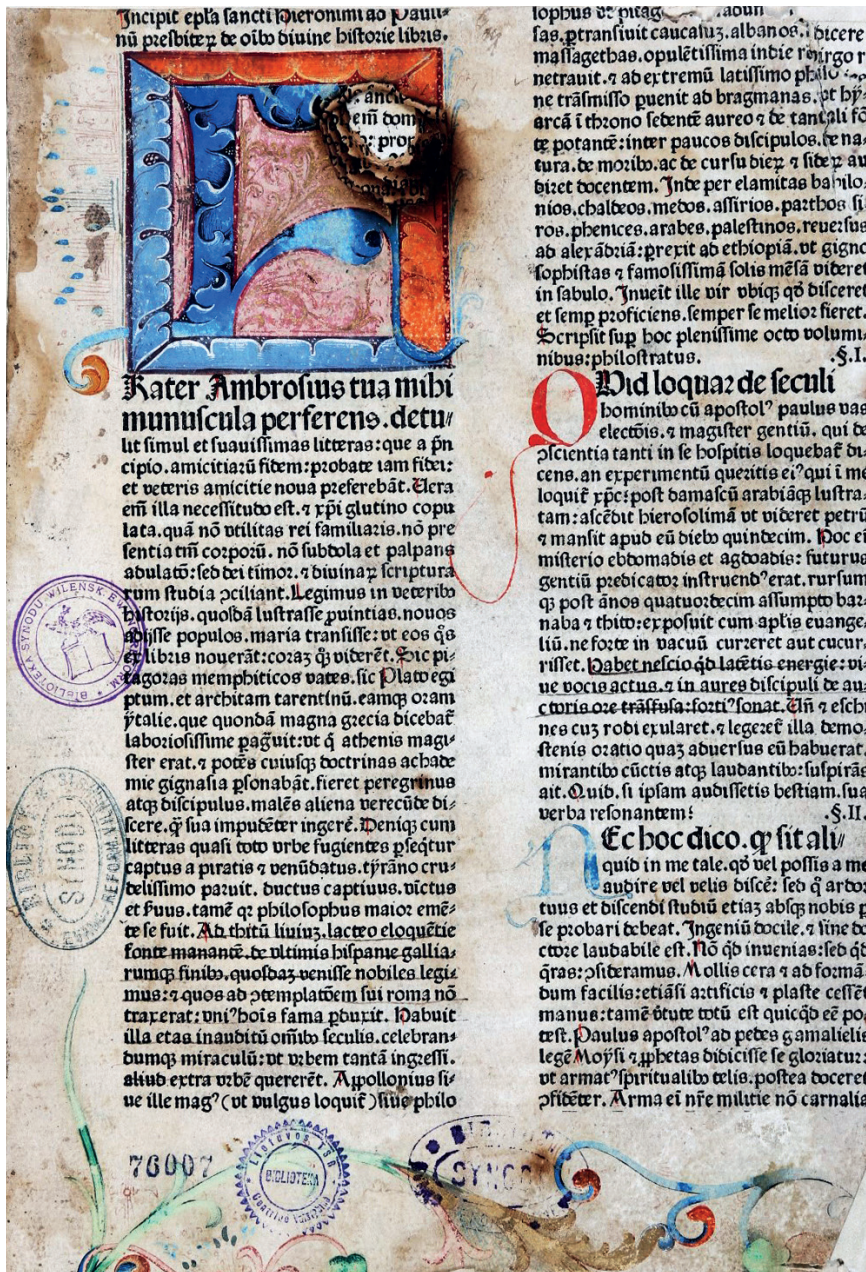 Incipit epła sancti Hieronimi ad Pauli-
nū presbiteꝝ de oĩbꝰ divine historie libris.
N: anci
em dom
ꝓp
Rater Ambrosius tua mihi
munuscula perferens. detu//
lit simul et suauissimas litteras: que a pn̄
cipio. amicitiarū fidem: probate iam fidei:
et veteris amicitie noua preferebāt. Uera
em̄ illa necessitudo est. ⁊ xp̄i glutino copu
lata. quā nō vtilitas rei familiaris. nō pre
sentia tm̄ corpoꝝū. nō subdola et palpans
adulatō: sed dei timor. ⁊ diuinaꝝ scriptura
rum studia ꝯciliant. Legimus in veteribꝰ
historijs. quosdā lustrasse ꝓuintias. nouos
adijsse populos. maria transisse: vt eos q̄s
ex libris nouerāt: coraꝫ qꝫ viderēt. Sic pi-
tagoras memphiticos vates. sic Plato egi
ptum. et architam tarentinū. eamqꝫ oram
ytalie. que quondā magna grecia dicebat̄
laboriosissime ꝑag̃uit: vt q̄ athenis magi-
ster erat. ⁊ potēs cuiusqꝫ doctrinas achade
mie gignasia ꝑsonabāt. fieret peregrinus
atqꝫ discipulus. malēs aliena verecūde di-
scere. q̄ sua impudēter ingerē. Deniqꝫ cum
litteras quasi toto orbe fugientes ꝑseq̄tur
captus a piratis ⁊ venūdatus. tyrāno cru-
delissimo paruit. ductus captiuus. victus
et ẜuus. tamē qꝛ philosophus maior emē-
te se fuit. Ad thitū liuiuꝫ. lacteo eloquētie
fonte manantē. de vltimis hispanie gallia-
rumqꝫ finibꝰ. quosdaꝫ venisse nobiles legi-
mus: ⁊ quos ad ꝯtemplatōem sui roma nō
traxerat: vniꝰ hoīs fama ꝑduxit. Habuit
illa etas inauditū om̄ibꝰ seculis. celebran-
dumqꝫ miraculū: vt vrbem tantā ingressi.
aliud extra vrbē quererēt. Appollonius si-
ue ille magꝰ (vt vulgus loquit̄) siue philo
sas. ꝑtransiuit caucaluꝫ. albanos.
massagethas. opulētissima indie re
netrauit. ⁊ ad extremū latissimo
ne trāsmisso puenit ad bragmanas. vt hy-
arcā ī throno sedentē aureo ⁊ de tantali fō
te potantē: inter paucos discipulos. de na-
tura. de moribꝰ. ac de cursu dieꝝ ⁊ sideꝝ au
diret docentem. Inde per elamitas babilo-
nios. chaldeos. medos. assirios. parthos si
ros. phenices. arabes. palestinos. reuersus
ad alexādriā: ꝑrexit ad ethiopiā. vt gigno
sophistas ⁊ famosissimā solis mēsā videret
in sabulo. Inueīt ille vir vbiqꝫ qd̄ disceret
et semꝑ proficiens. semper se melior fieret.
Scripsit suꝑ hoc plenissime octo volumi-
nibus: philostratus. .§.I.
Vid loquar de seculi
hominibꝰ cū apostolꝰ paulus vas
electōis. ⁊ magister gentiū. qui de
ꝯscientia tanti in se hospitis loquebat̄ di-
cens. an experimentū queritis eiꝰ qui ī me
loquit̄ xp̄c: post damascū arabiāqꝫ lustra-
tam: ascēdit hierosolimā vt videret petrū
⁊ mansit apud eū diebꝰ quindecim. Hoc ei
misterio ebdomadis et agdoadis: futurus
gentiū predicator instruendꝰ erat. rursum
qꝫ post ānos quatuordecim assumpto bar-
naba ⁊ thito: exposuit cum ap̄lis euange-
liū. ne forte in vacuū curreret aut cucur-
risset. Habet nescio qd̄ latētis energie: vi-
ue vocis actus. ⁊ in aures discipuli de au-
ctoris ore trāsfusa: fortiꝰ sonat. Un̄ ⁊ eschi
nes cuꝫ rodi exularet. ⁊ legeret̄ illa demo-
stenis oratio quaꝫ aduersus eū habuerat.
mirantibꝰ cūctis atqꝫ laudantibꝰ: suspirās
ait. Quid. si ipsam audissetis bestiam. sua
verba resonantem? .§.II.
Ec hoc dico. qꝙ sit ali//
quid in me tale. qd̄ vel possis a me
audire vel velis discē: sed q̄ ardor
tuus et discendi studiū etiaꝫ absqꝫ nobis ꝑ
se probari debeat. Ingeniū docile. ⁊ sine do
ctore laudabile est. Nō qd̄ inuenias: sed qd̄
q̄ras: ꝯsideramus. Mollis cera ⁊ ad formā
dum facilis: etiāsi artificis ⁊ plaste cessēt
manus: tamē v̄tute totū est quicqd̄ eē po
test. Paulus apostolꝰ ad pedes gamalielis
legē Moysi ⁊ ꝓphetas didicisse se gloriatur:
vt armatꝰ spiritualibꝰ telis. postea doceret
ꝯfidēter. Arma ei nr̄e militie nō carnalia
BIBLIOTEKA SYNODU WILEŃSK. EWANG. REFORM.
SYNODU
76007
LIETUVOS TSR
BIBLIOTEKA
SYNOD